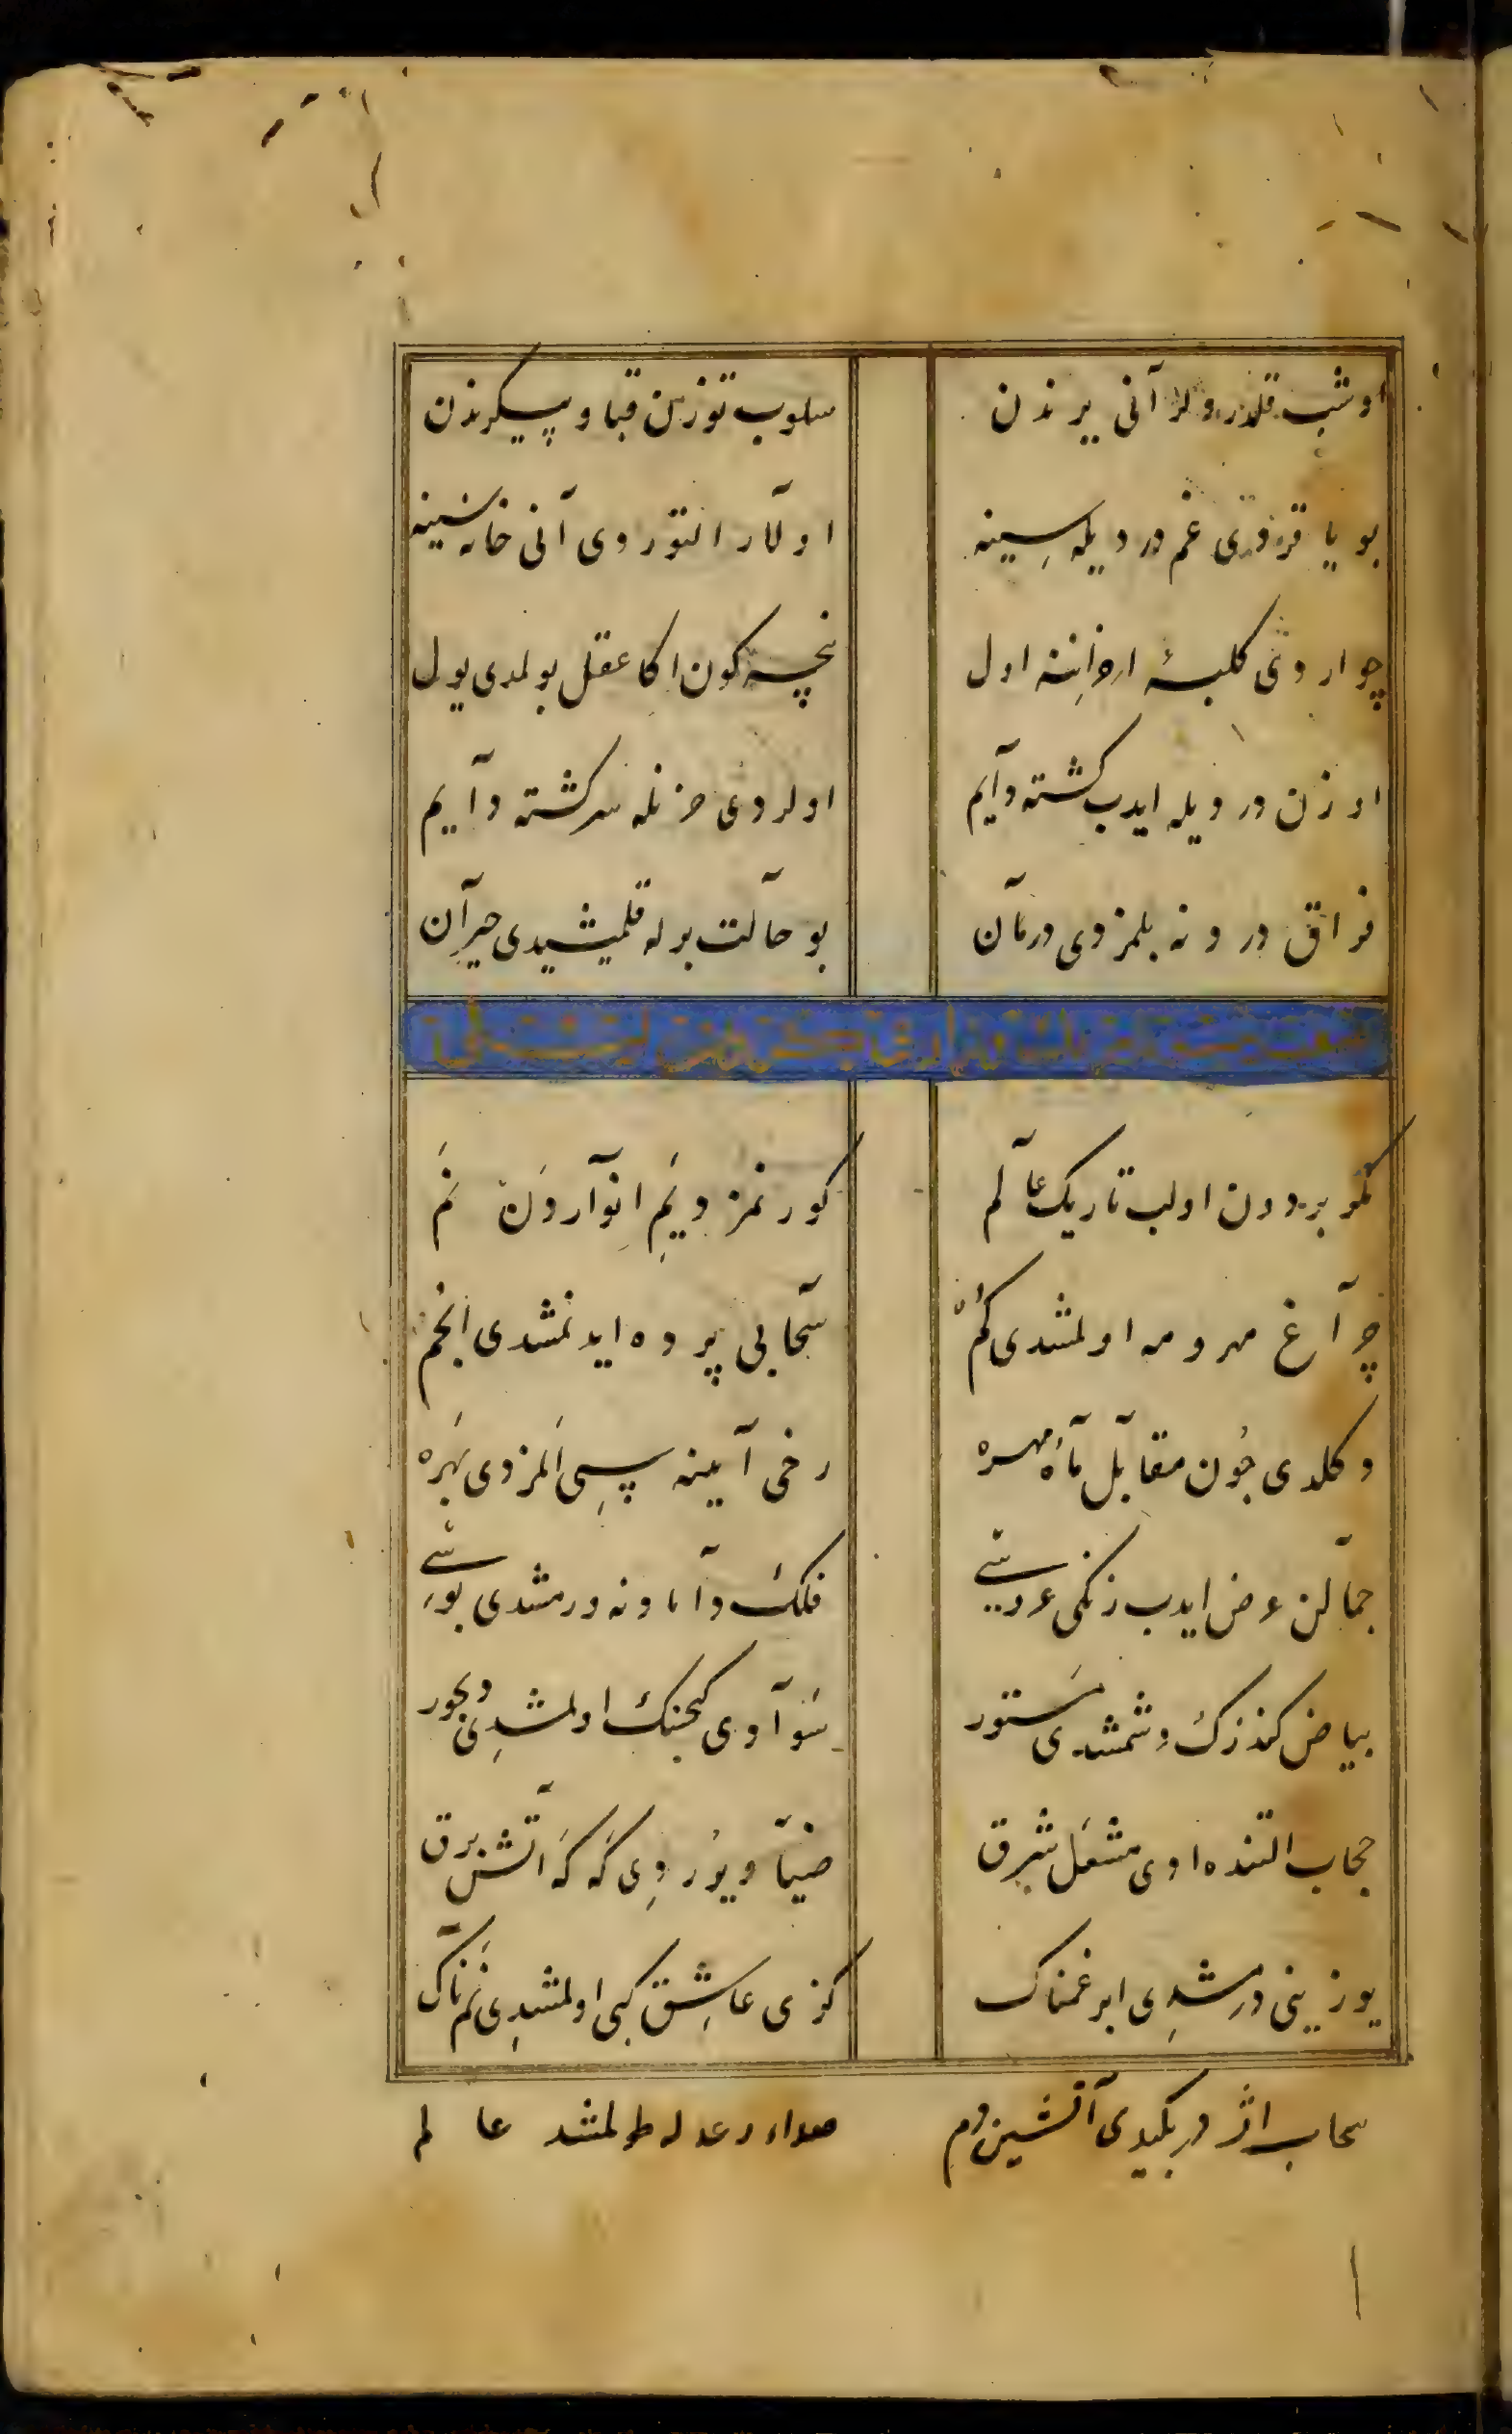 اوشب قلدردولر آنی یردن
سلوب توزین قبا و پیکرندن
بو یا قردی غم دردیله سینه
اولار التوردی آنی خانه سینه
چو اردی کلبۀ احزاننه اول
نچه کون اکا عقل بولمدی یول
اوزن دردیله ایدب کشته دآیم
اولردی حزنله سرکشته دآیم
فراق دردونه بلمزدی درمآن
بو حآلت برله قلمیشیدی حیرآن
مکر بر دون اولب تاریک عآلم
کورنمزدی یم انوآردن نم
چرآغ مهر و مه اولمشدی کم
سحآبی پرده ایدنمشدی انجم
دکلدی چون مقآبل مآه مهره
رخی آیینه سی المزدی بهره
جمآلن عرض ایدب زنکی عروسی
فلک دآمادونه ورمشدی بوسی
بیاض کندزک دشمشدی مستور
سوآدی کیجنک اولمشدی دیجور
حجاب التنده اودی مشعل شرق
ضیآ ویوردی که که آتش برق
یوزینی درمشدی ابر غمناک
کوزی عاشق کبی اولمشدی نمناک
سحاب اژدربکیدی آتشین دم
صداء رعدله طولمشد عالم